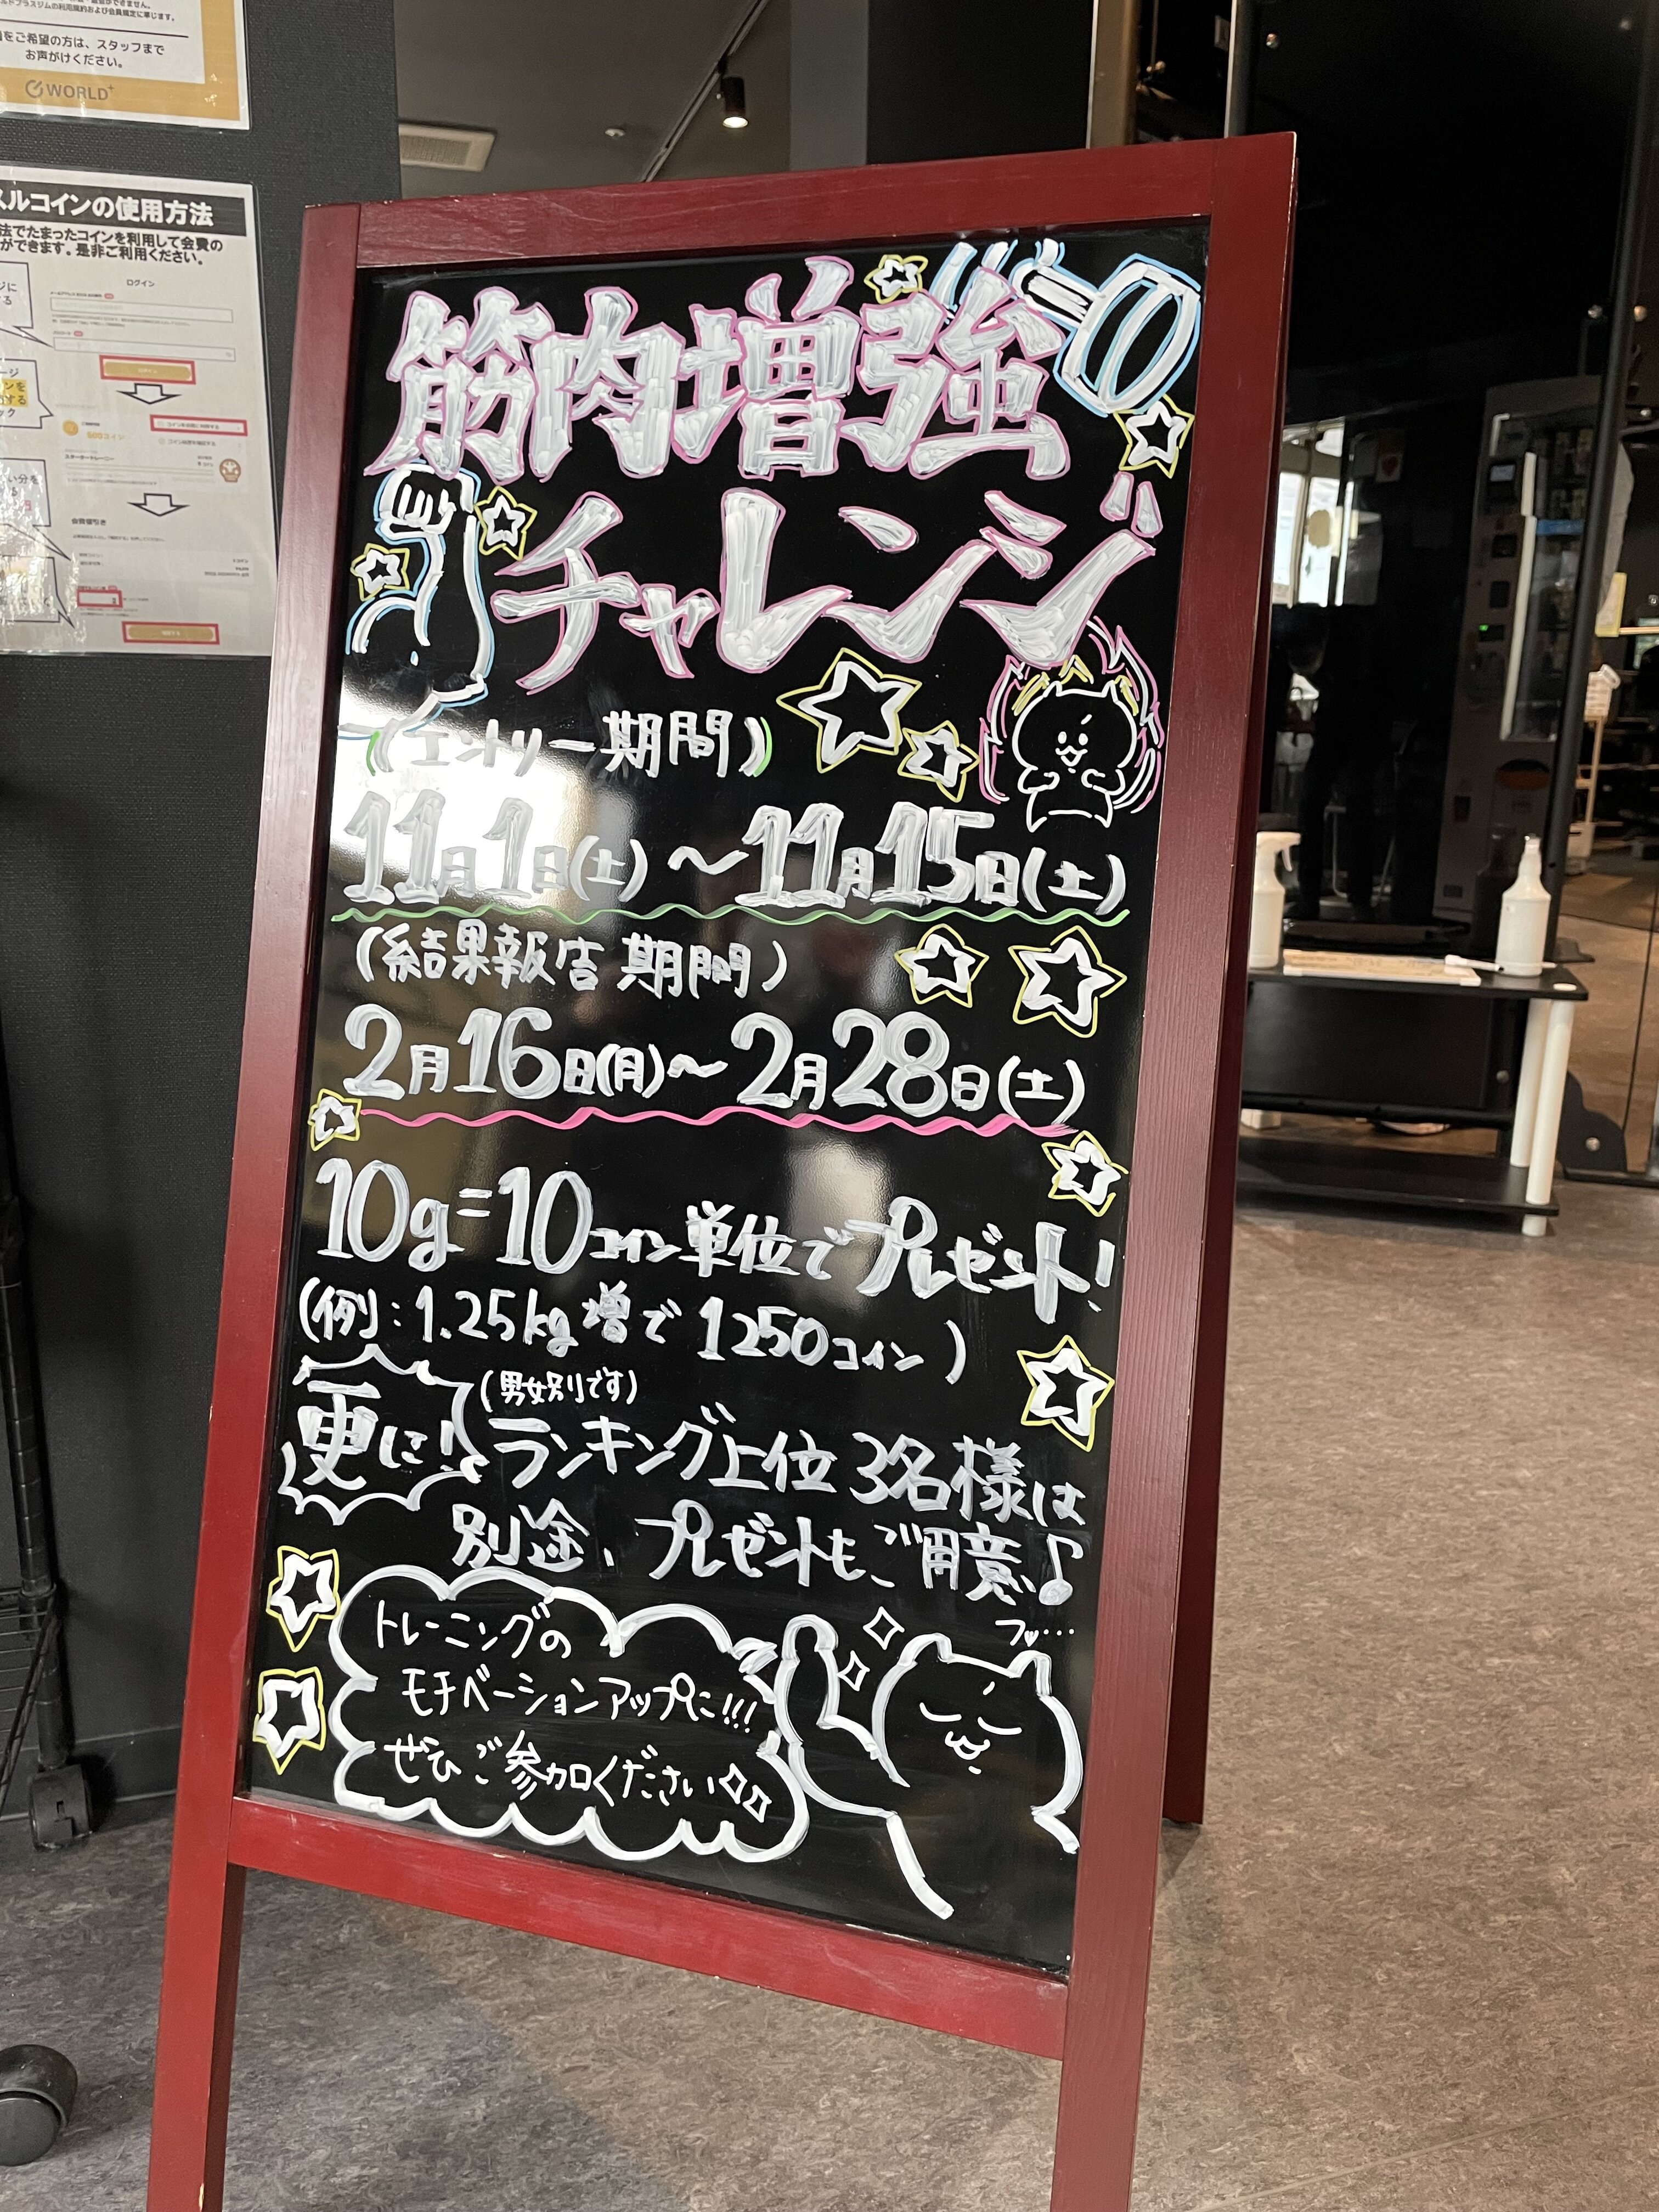 ルドプラスジムの利用規約および会員規定に準じます。
をご希望の方は、スタッフまで
お声がけください。
WORLD+
スルコインの使用方法
法でたまったコインを利用して会費の
ができます。是非ご利用ください。
ログイン
500コイン
筋肉増強
チャレンジ
(エントリー期間)
11月1日(土)～11月15日(土)
(結果報告期間)
2月16日(月)～2月28日(土)
10g=10コイン単位でプレゼント!
(例:1.25kg増で1250コイン)
更に!
(男女別です)
ランキング上位3名様は
別途、プレゼントもご用意♪
トレーニングの
モチベーションアップに!!!
ぜひご参加ください
フッ…